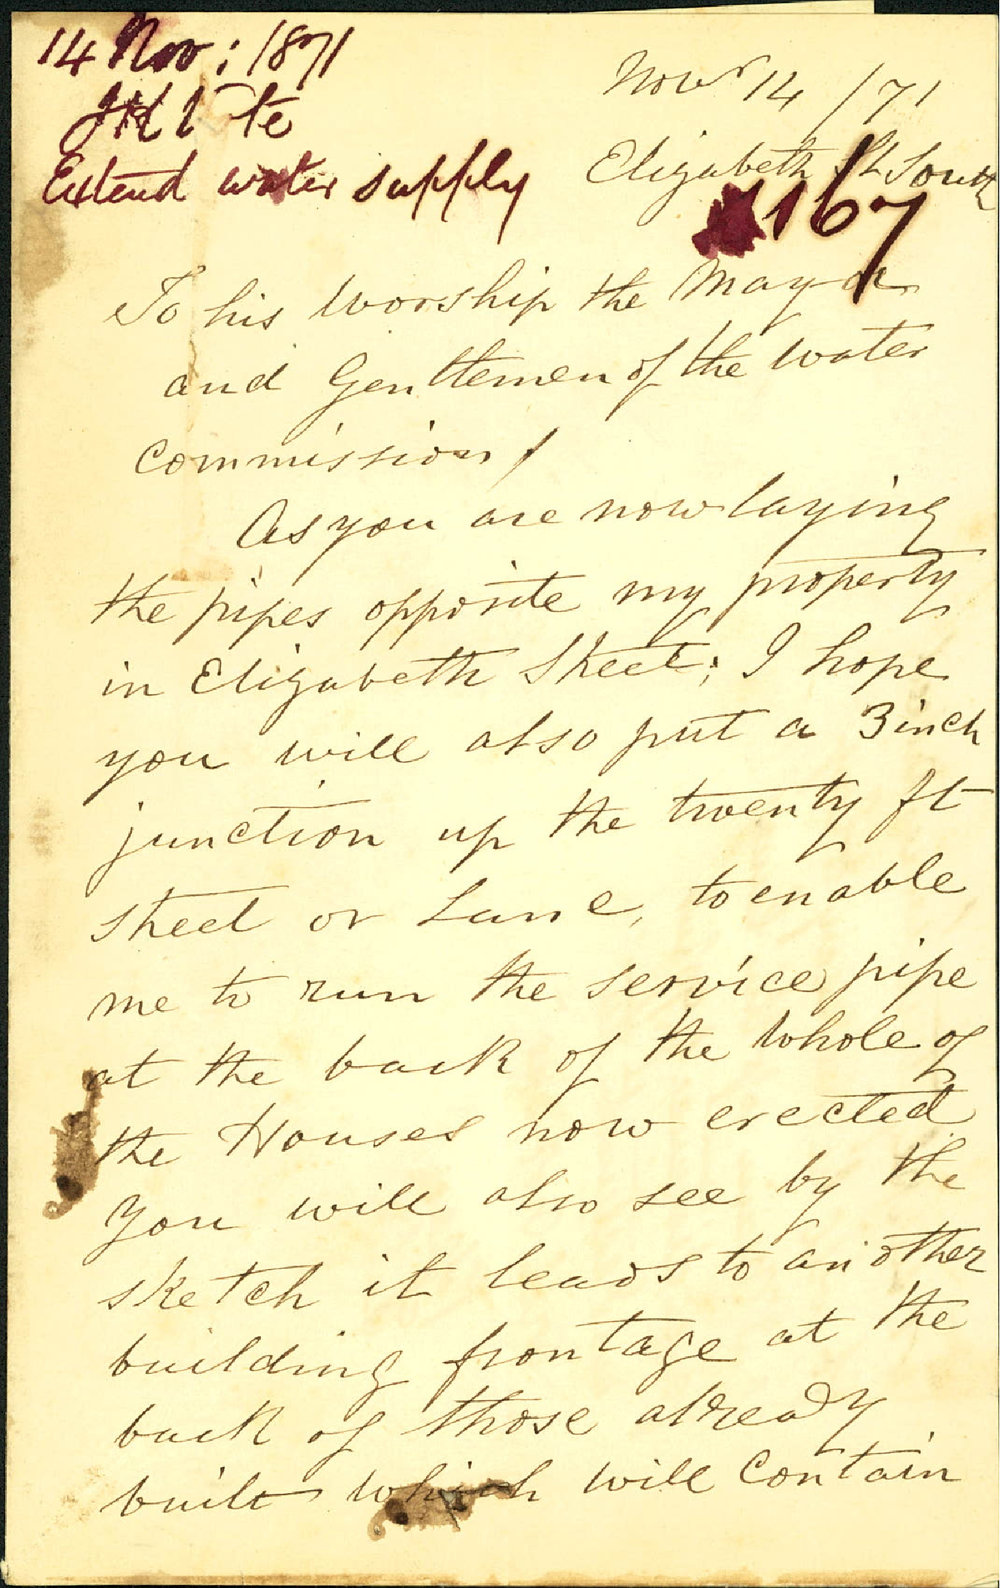 14 Nov: 1871
Extend water supply
Novr 14 /71
Elizabeth St South
167
To his Worship the Mayor
and Gentlemen of the Water
Commission/
As you are now laying
the pipes opposite my property
in Elizabeth Street; I hope
you will also put a 3 inch
junction up the twenty ft
street or Lane, to enable
me to run the service pipe
at the back of the whole of
the Houses now erected
you will also see by the
sketch it leads to another
building frontage at the
back of those already
built which will contain